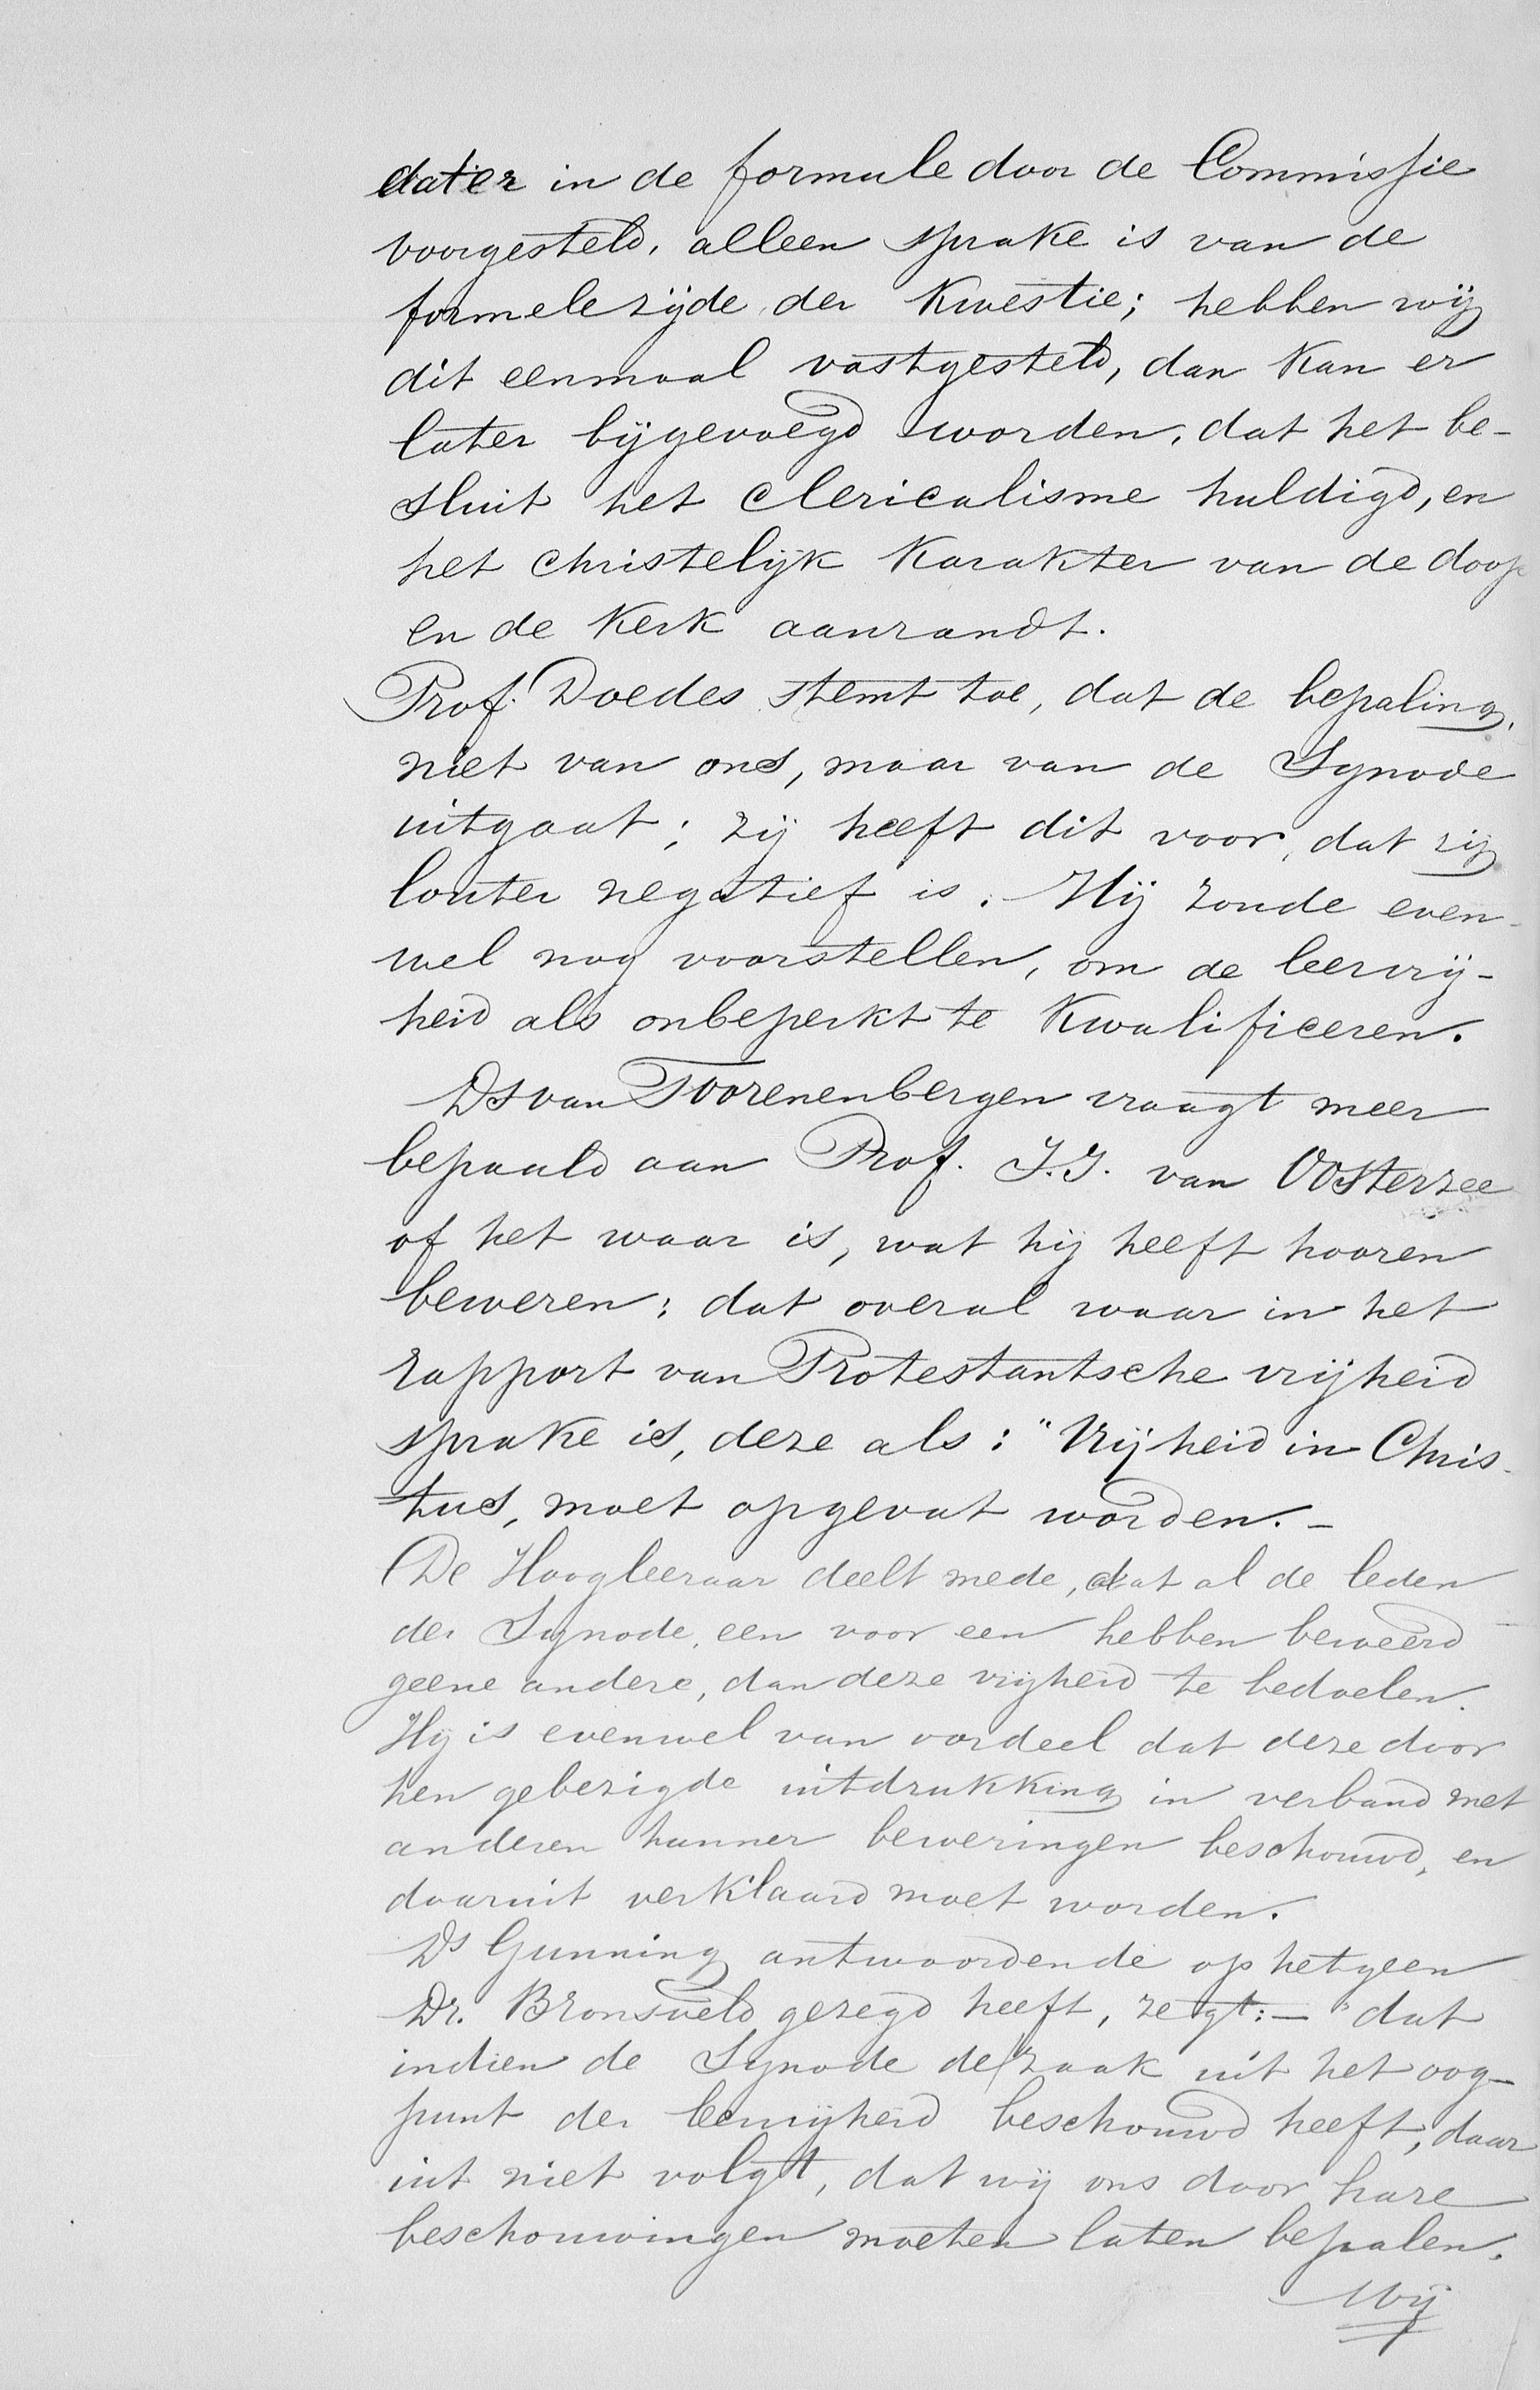 dater in de formule door de Commissie
voorgesteld, alleen sprake is van de
formele zijde der Kwestie; hebben wij
dit eenmaal vastgesteld, dan kan er
later bijgevoegd worden, dat het be-
sluit het clericalisme huldigd, en
het christelijk Karakter van de doop
en de Kerk aanrandt.
Prof. Doedes stemt toe, dat de bepaling,
niet van ons, maar van de Synode
uitgaat; zij heeft dit voor, dat zij
louter negatief is. Hij zoude even-
wel nog voorstellen, om de leervrij-
heid als onbeperkt te Kwalificeren.
Ds van Toorenenbergen vraagt meer
bepaald aan Prof. J.J. van Oosterzee
of het waar is, wat hij heeft hooren
beweren: dat overal waar in het
rapport van Protestantsche vrijheid
sprake is, deze als: "Vrijheid in Chris-
tus, moet opgevat worden. -
De Hoogleeraar deelt mede, dat al de leden
der Synode, een voor een hebben beweerd
geene andere, dan deze vrijheid te bedoelen.
Hij is evenwel van oordeel dat deze door
hen gebezigde uitdrukking in verband met
anderen hunner beweringen beschouwd, en
daaruit verklaard moet worden.
Ds Gunning antwoordende op hetgeen
Dr. Bronsveld gezegd heeft, zegt: - "dat
indien de Synode de zaak uit het oog-
punt der leervrijheid beschouwd heeft, daar
uit niet volgt, dat wij ons door hare
beschouwingen moeten laten bepalen.
Wij